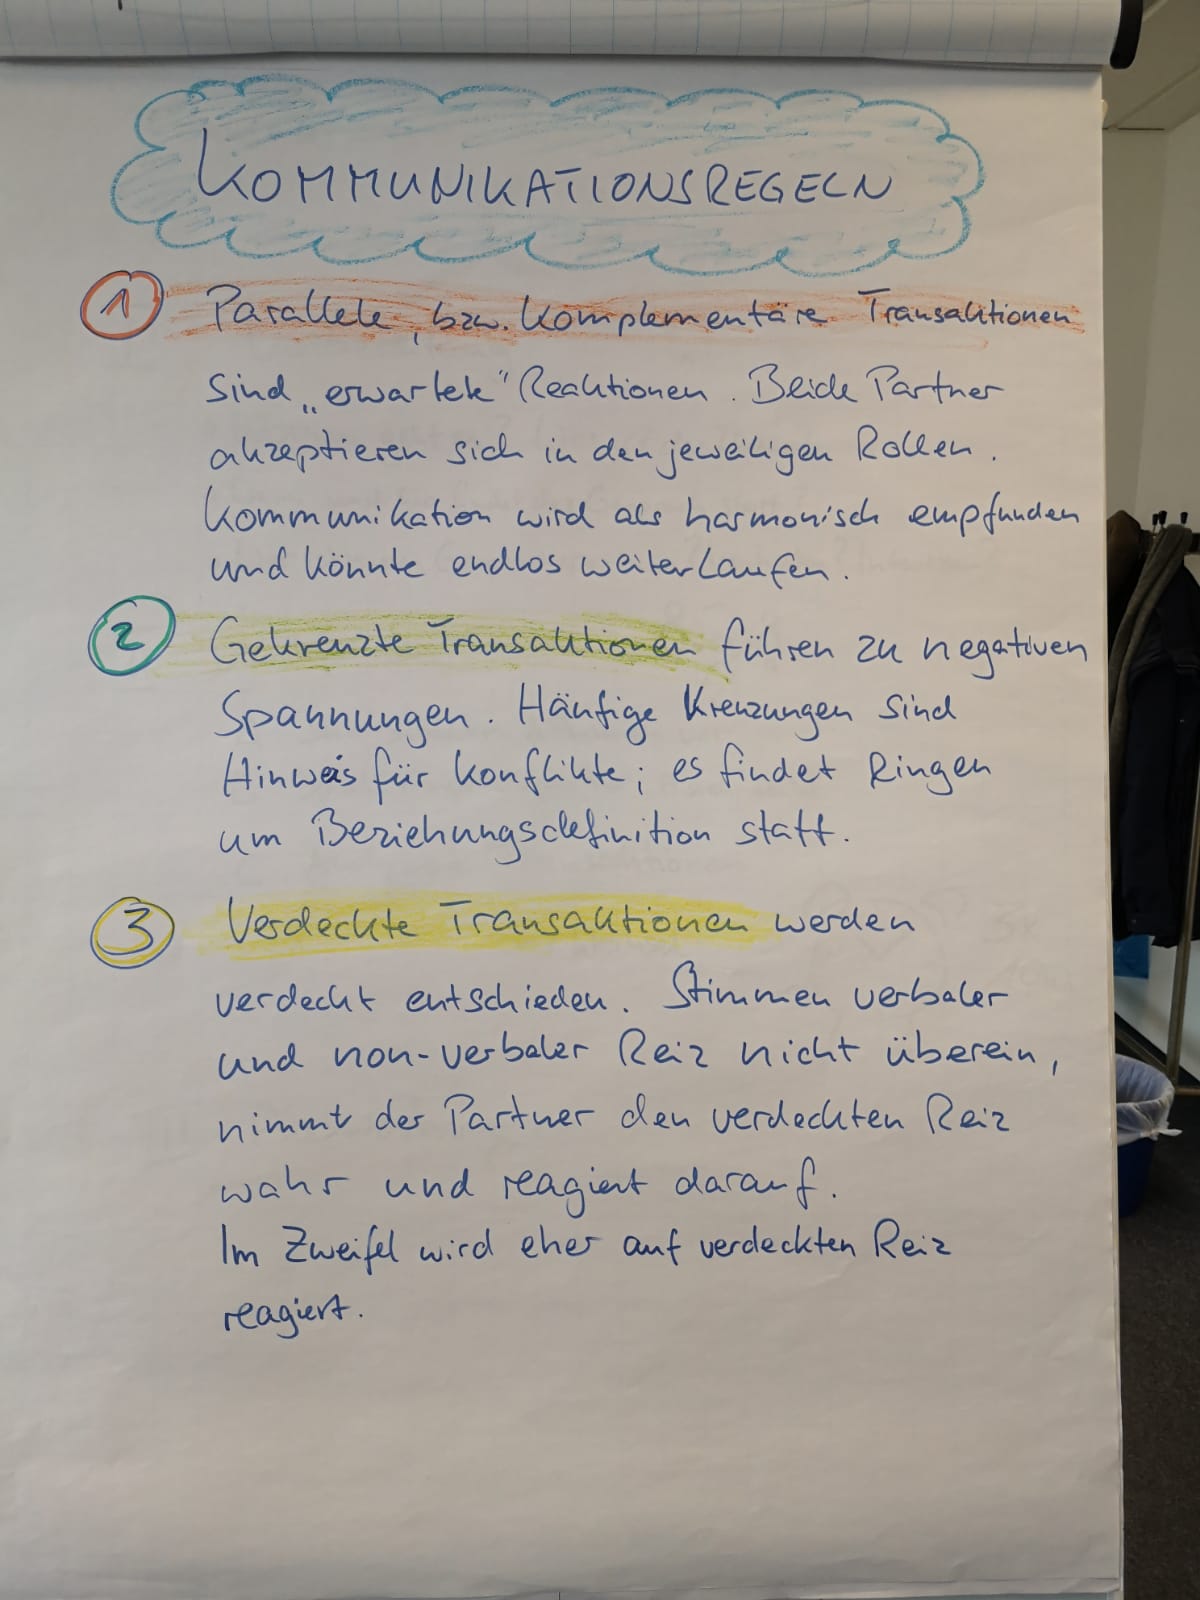 KOMMUNIKATIONSREGELN
1 Parallele, bzw. Komplementäre Transaktionen
sind „erwartete" Reaktionen. Beide Partner
akzeptieren sich in den jeweiligen Rollen.
Kommunikation wird als harmonisch empfunden
und könnte endlos weiterlaufen.
2 Gekreuzte Transaktionen führen zu negativen
Spannungen. Häufige Kreuzungen sind
Hinweis für Konflikte; es findet Ringen
um Beziehungsdefinition statt.
3 Verdeckte Transaktionen werden
verdeckt entschieden. Stimmen verbaler
und non-verbaler Reiz nicht überein,
nimmt der Partner den verdeckten Reiz
wahr und reagiert darauf.
Im Zweifel wird eher auf verdeckten Reiz
reagiert.